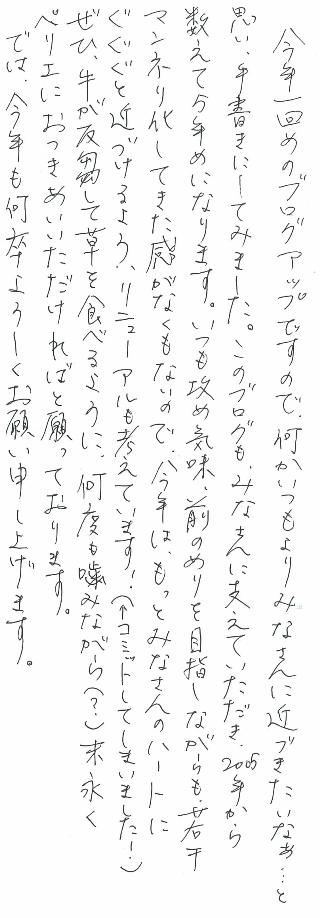 今年一回めのブログアップですので、何かいつもよりみなさんに近づきたいなぁ…と
思い、手書きにしてみました。このブログも、みなさんに支えていただき、2005年から
数えて5年めになります。いつも攻め気味、前のめりを目指しながらも、若干
マンネリ化してきた感がなくもないので、今年は、もっとみなさんのハートに
ぐぐぐと近づけるよう、リニューアルも考えています！（↑コミットしてしまいました！）
ぜひ、牛が反芻して草を食べるように、何度も噛みながら（？）末永く
ペリエにおつきあいいただければと願っております。
では、今年も何卒よろしくお願い申し上げます。